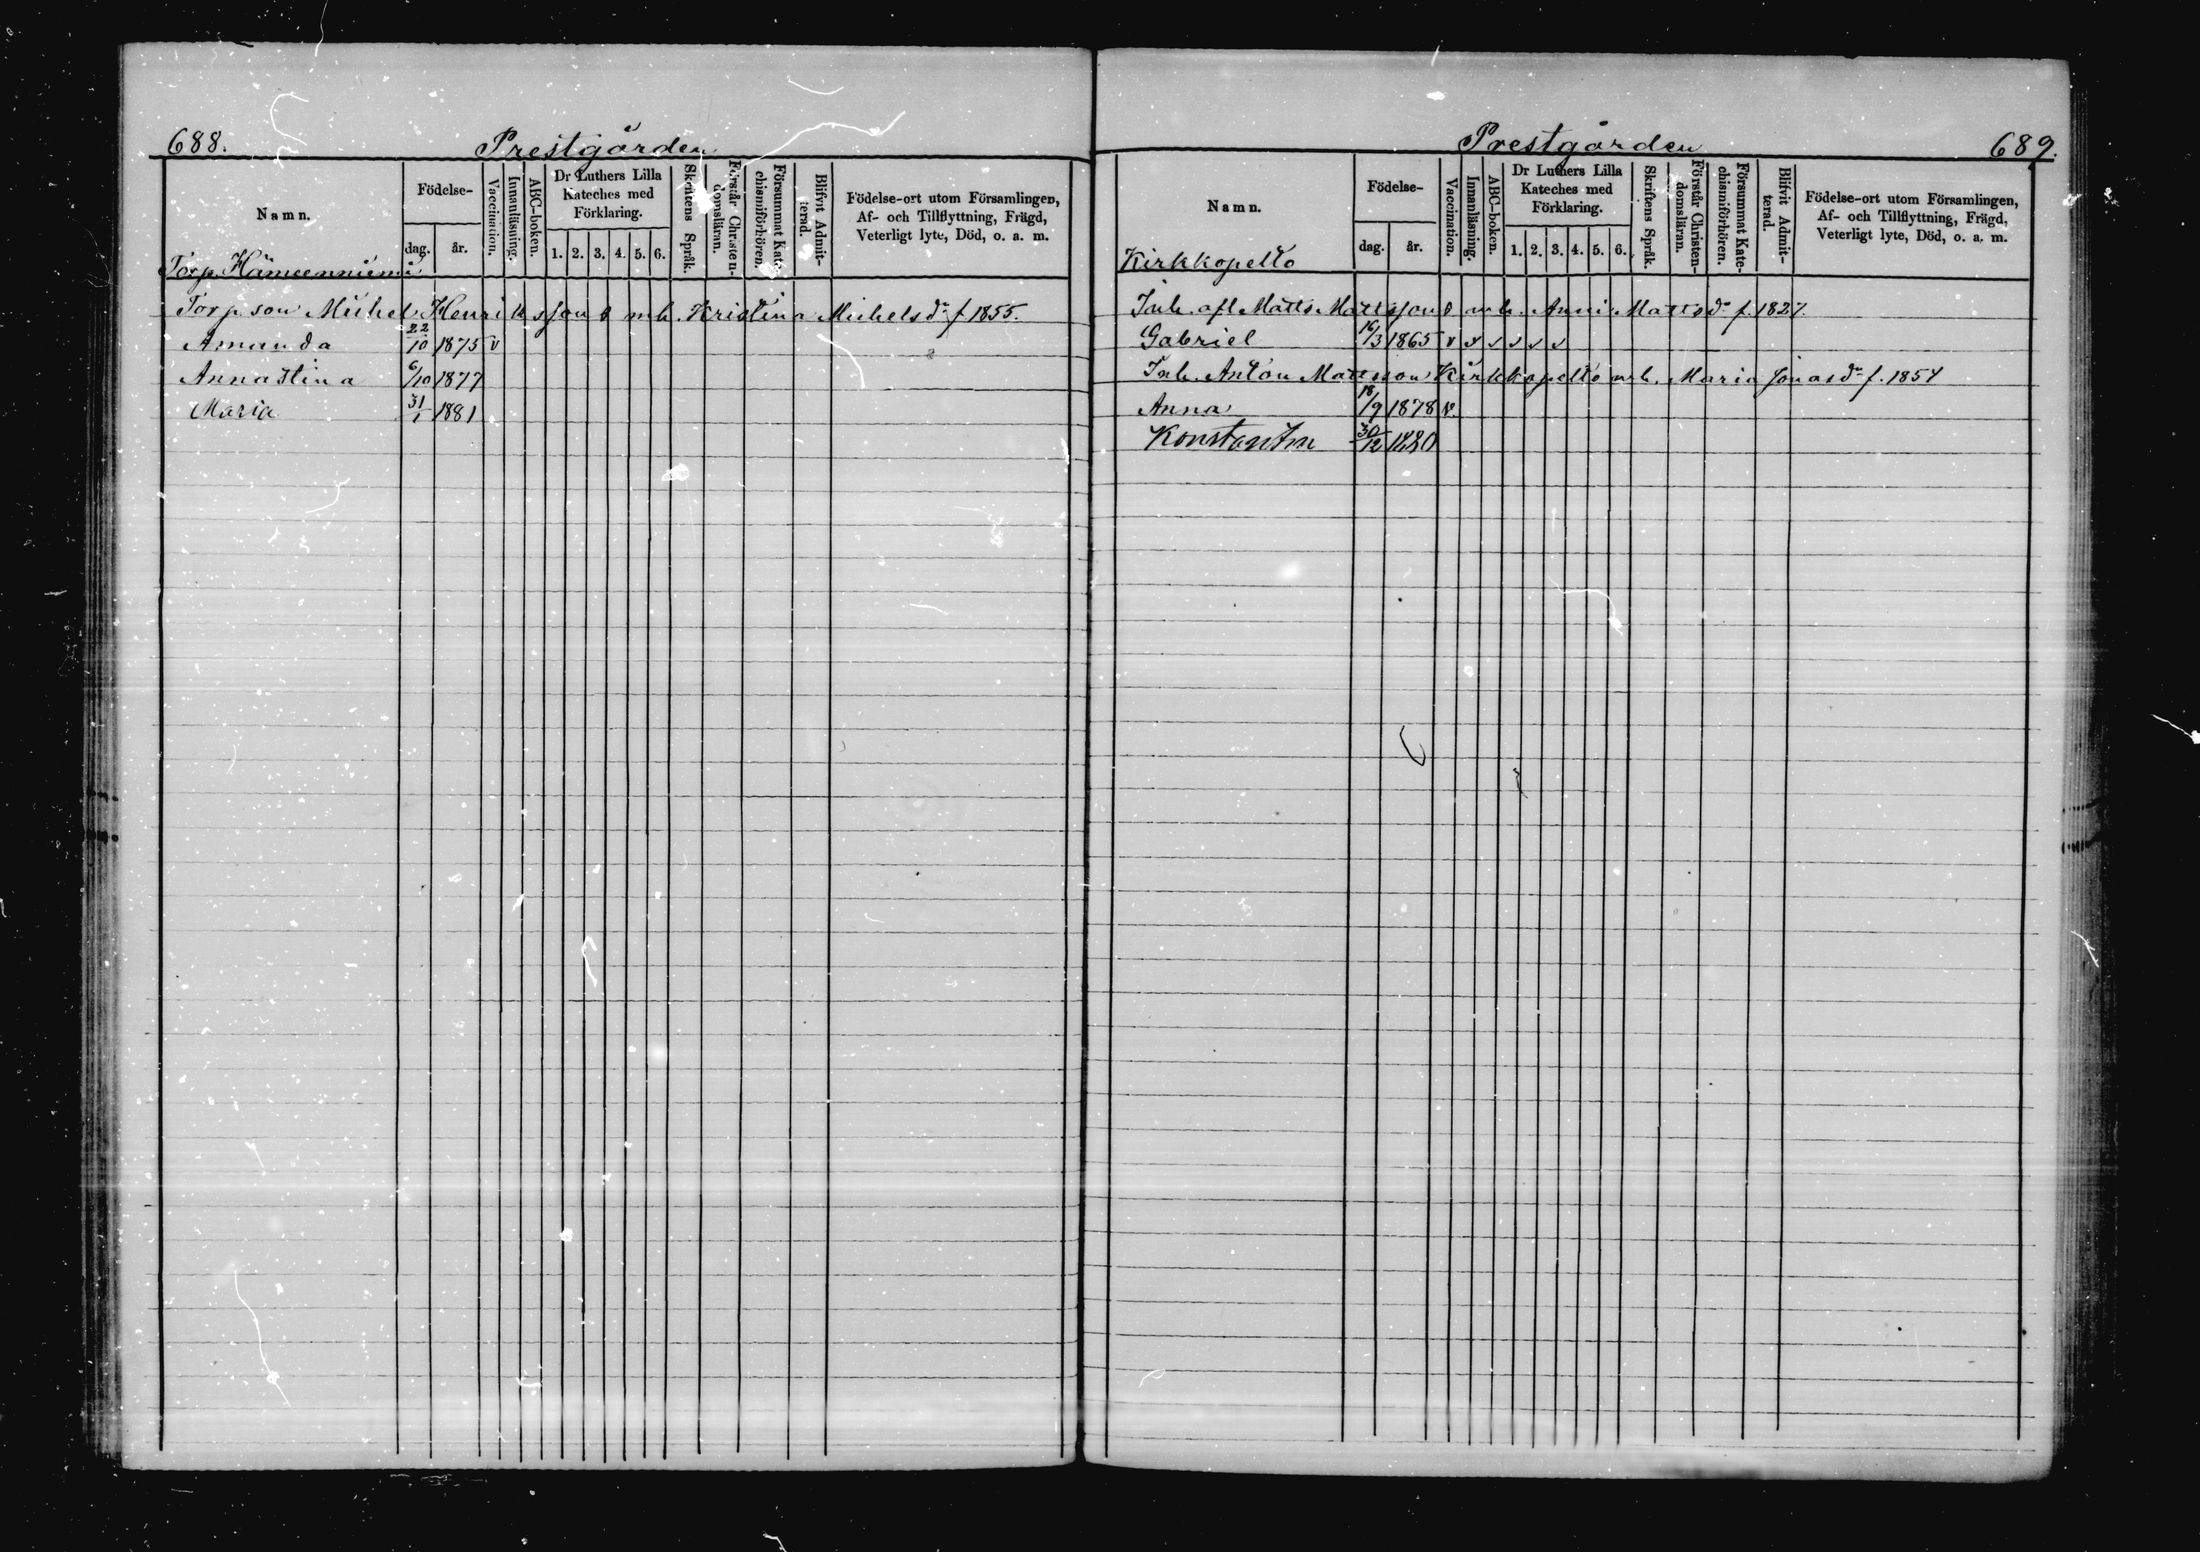 688.
Prestgården
Namn.
Födelse-
dag.
år.
Vaccination.
Innanläsning.
ABC-boken.
Dr Luthers Lilla
Kateches med
Förklaring.
1. 2. 3. 4. 5. 6.
Skriftens Språk.
Förstår Christen-
domsläran.
Försummat Kate-
chismiförhören.
Blifvit Admit-
terad.
Födelse-ort utom Församlingen,
Af- och Tillflyttning, Frägd,
Veterligt lyte, Död, o. a. m.
Torp. Hämeenniemi
Torp. son Michel Henriksson o mh. Kristina Michelsdr f 1855.
Amanda 22/10 1875 v
Annastina 6/10 1877
Maria 31/1 1881
Prestgården
689.
Namn.
Födelse-
dag.
år.
Vaccination.
Innanläsning.
ABC-boken.
Dr Luthers Lilla
Kateches med
Förklaring.
1. 2. 3. 4. 5. 6.
Skriftens Språk.
Förstår Christen-
domsläran.
Försummat Kate-
chismiförhören.
Blifvit Admit-
terad.
Födelse-ort utom Församlingen,
Af- och Tillflyttning, Frägd,
Veterligt lyte, Död, o. a. m.
Kirkkopelto
Inh. afl Matts Mattsson o mh. Anni Mattsdr f. 1827.
Gabriel 16/3 1865 v v v v v v
Inh. Anton Mattsson Kirkkopelto mh. Maria Jonasdr f. 1857
Anna 18/9 1878 v.
Konstantin 30/12 1880